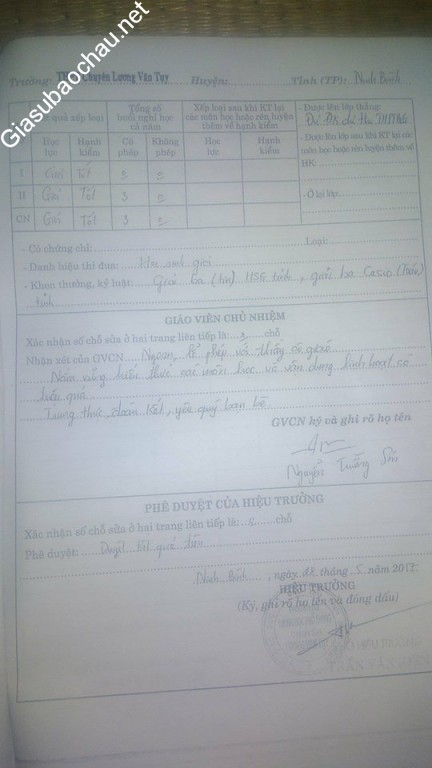 Giasubaochau.net
Trường: THPT Chuyên Lương Văn Tụy Huyện: Tỉnh (TP): Ninh Bình
Kết quả xếp loại
Tổng số buổi nghỉ học cả năm
Xếp loại sau khi KT lại các môn học hoặc rèn luyện thêm về hạnh kiểm
Học lực
Hạnh kiểm
Có phép
Không phép
Học lực
Hạnh kiểm
- Được lên lớp thẳng:
- Được lên lớp sau khi KT lại các môn học hoặc rèn luyện thêm về HK:
- Ở lại lớp:
I Giỏi Tốt
II Giỏi Tốt 3
CN Giỏi Tốt 3
- Có chứng chỉ: Loại:
- Danh hiệu thi đua: Học sinh giỏi
- Khen thưởng, kỷ luật: Giải ba (tin) HSG tỉnh, giải ba Casio (Toán)
tỉnh
GIÁO VIÊN CHỦ NHIỆM
Xác nhận số chỗ sửa ở hai trang liên tiếp là: chỗ
Nhận xét của GVCN Ngoan, lễ phép với thầy cô giáo
Nắm vững kiến thức các môn học và vận dụng linh hoạt có
hiệu quả.
Trung thực, đoàn kết, yêu quý bạn bè
GVCN ký và ghi rõ họ tên
Nguyễn Trường Sơn
PHÊ DUYỆT CỦA HIỆU TRƯỞNG
Xác nhận số chỗ sửa ở hai trang liên tiếp là: chỗ
Phê duyệt: Duyệt kết quả trên
Ninh Bình, ngày tháng 5 năm 2012
HIỆU TRƯỞNG
(Ký, ghi rõ họ tên và đóng dấu)